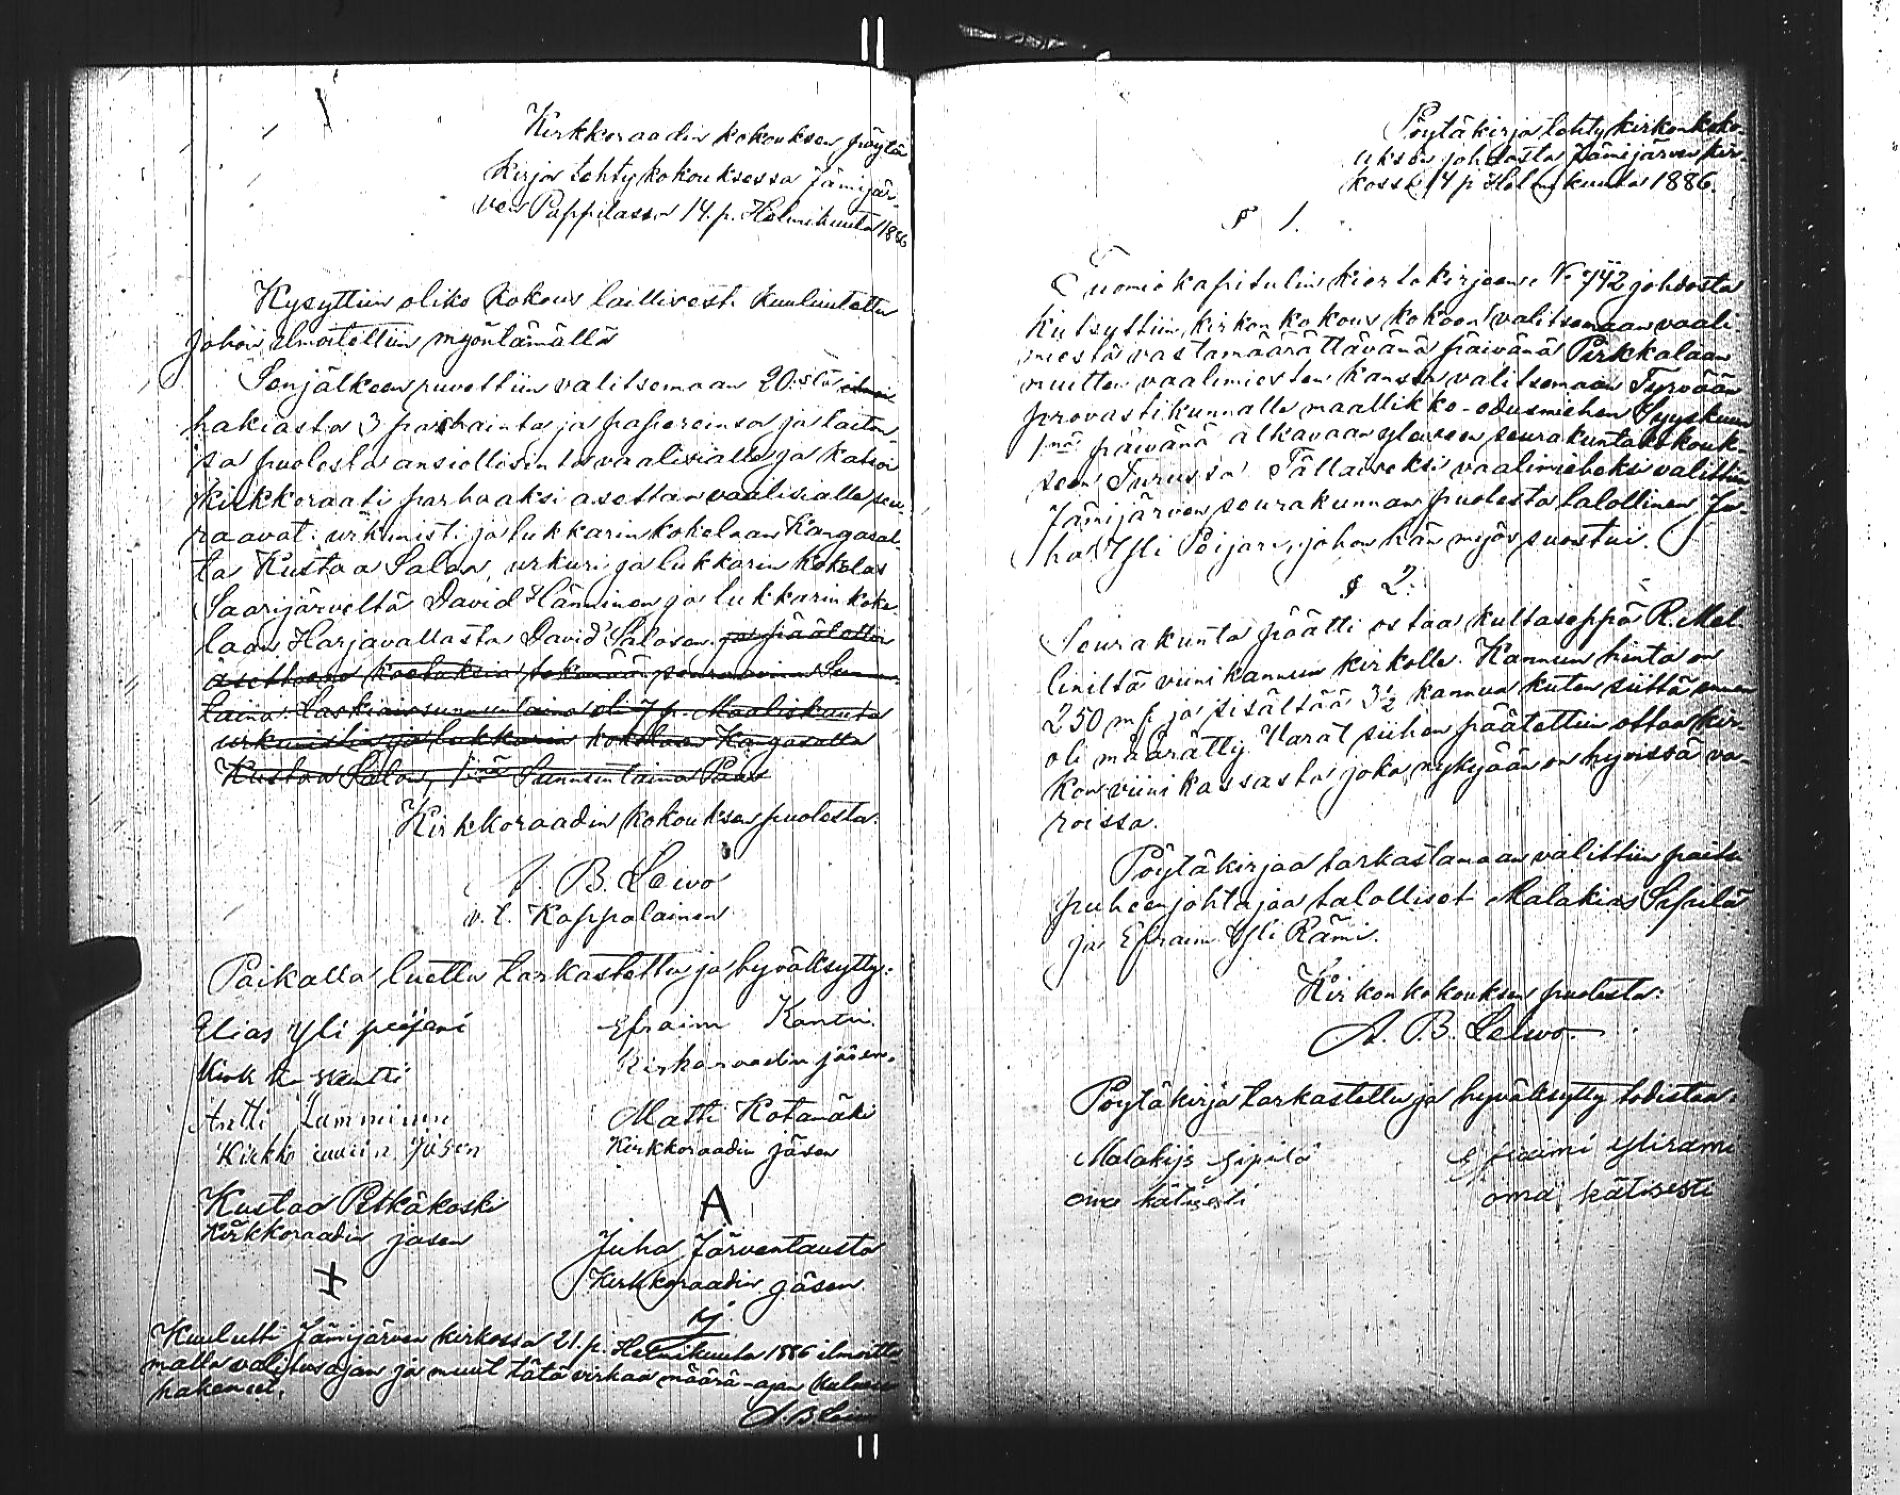 Kirkkoraadin kokouksen pöytä
kirja tehty kokouksessa Jämijär-
ven Pappilassa 14. p. Helmikuuta 1886
Kysyttiin oliko kokous laillisesti kuulutettu
johon ilmoitettiin myöntämällä
Senjälkeen ruvettiin valitsemaan 20:stä
hakiasta 3 parhainta ja papereinsa ja laitan-
sa puolesta ansiollisinta vaalisialle ja katsoi
Kirkkoraati parhaaksi asettaa vaalisialle seu-
raavat: urkunisti ja lukkarin kokelaan Kangasal-
ta Kustaa Salan, urkuri ja lukkarin kokelas
Saarijärveltä David Hänninen ja lukkarin koke-
laan Harjavallasta David Salosen. ja päätettiin
asettaa koetuksia tekemään seuraavina Sunnun-
taina: Laskiaissunnuntaina eli 7 p. Maaliskuuta
urkunistin ja lukkarin kokelaan Kangasalta
Kustaa Salan, 1:sä Sunnuntaina Paas
Kirkkoraadin kokouksen puolesta:
A. B. Leiwo
v. t. Kappalainen
Paikalla luettu tarkastettu ja hyväksytty:
Elias Yli peijari
Efraim Kontti
Kirkoraadin jäsen.
Antti Lamminen
Kirkko raadin Jäsen
Matti Kotamäki
Kirkkoraadin jäsen
Kustaa Pitkäkoski
Kirkkoraadin jäsen
A
Juha Järventausta
Kirkkoraadin jäsen
Kuulutti Jämijärven kirkossa 21. p. Helmikuuta 1886 ilmoitta-
malla valitusajan ja muut tätä virkaa määrä-ajan kuluessa
hakeneet.
A. B. Leiwo
Pöytäkirja tehty kirkonkoko-
uksen johdosta Jämijärven kir-
kossa 14 p Helmikuuta 1886.
§ 1.
Tuomiokapitulin kiertokirjeen N:o 742 johdosta
kutsuttiin kirkon kokous kokoon valitsemaan vaali-
miestä vastamäärättävänä päivänä Pirkkalaan
muitten vaalimiesten kanssa valitsemaan Tyrvään
provastikunnalle maallikko-edusmiehen Syyskuun
1nä päivänä alkavaan yleiseen seurakuntakokouk-
seen Turussa. Tällaiseksi vaalimieheksi valittiin
Jämijärven seurakunnan puolesta talollinen Ju-
ha Yli Peijari, johon hän myös suostui.
§ 2.
Seurakunta päätti ostaa kultaseppä R. Mel-
liniltä viinikannun kirkolle. Kannun hinta on
250 mk ja sisältää 3½ kannua kuten siittä ennen
oli määrätty. Varat siihen päätettiin ottaa kir-
kon viinikassasta joka nykyjään on hyvissä va-
roissa.
Pöytäkirjaa tarkastamaan valittiin paitsi
puheenjohtajaa talolliset Malakias Sipilä
ja Efraim Yli Rämi.
Kirkonkokouksen puolesta:
A. B. Leiwo.
Pöytäkirja tarkastettu ja hyväksytty todistaa:
Malakijs Sipilä
oma kätisesti
Efraimi Ylirami
oma kätisesti